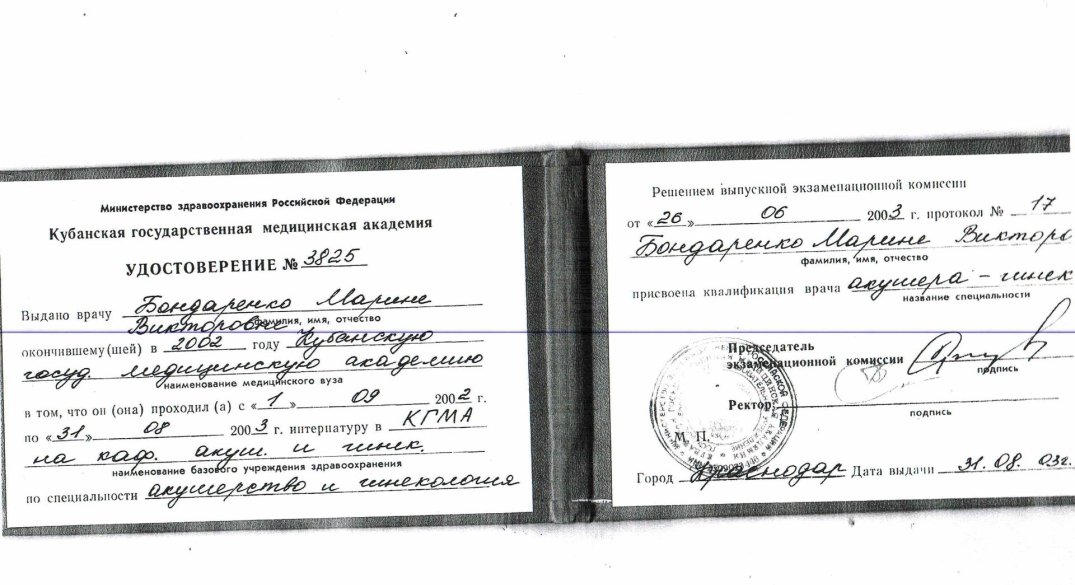 Министерство здравоохранения Российской Федерации
Кубанская государственная медицинская академия
УДОСТОВЕРЕНИЕ № 3825
Выдано врачу Бондаренко Марине
Викторовне
фамилия, имя, отчество
окончившему(шей) в 2002 году Кубанскую
госуд. медицинскую академию
наименование медицинского вуза
в том, что он (она) проходил (а) с «1» 09 2002 г.
по «31» 08 2003 г. интернатуру в КГМА
на каф. акуш. и гинек.
наименование базового учреждения здравоохранения
по специальности акушерство и гинекология
Решением выпускной экзаменационной комиссии
от «26» 06 2003 г. протокол № 17
Бондаренко Марине Викторо
фамилия, имя, отчество
присвоена квалификация врача акушера - гинек
название специальности
Председатель
экзаменационной комиссии
подпись
Ректор
подпись
М. П.
Город Краснодар Дата выдачи 31. 08. 03г.